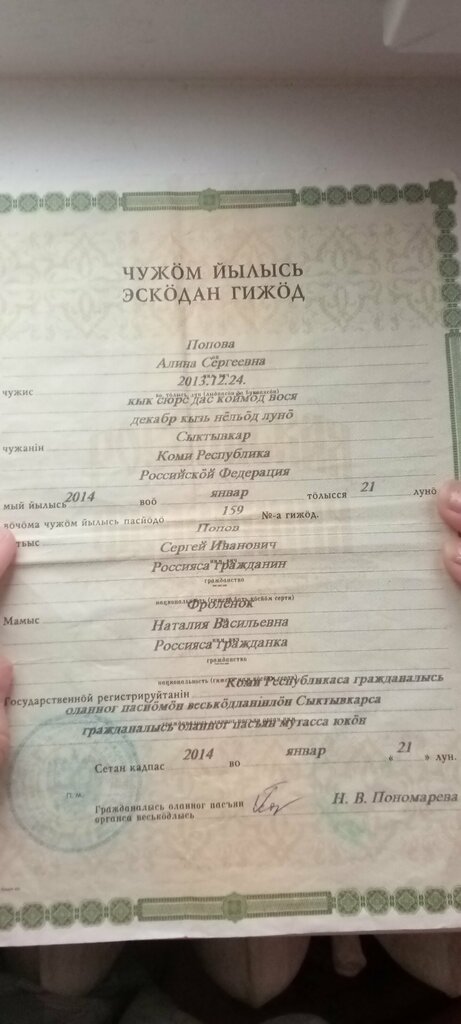 ЧУЖӦМ ЙЫЛЫСЬ
ЭСКӦДАН ГИЖӦД
Попова
Алина Сергеевна
2013.12.24.
чужис
кык сюрс дас коймӧд вося
декабр кызь нёльӧд лунӧ
Сыктывкар
чужанін
Коми Республика
Российскӧй Федерация
мый йылысь 2014 воӧ январ тӧлысся 21 лунӧ
чужӧм йылысь пасйӧдӧ 159 №-а гижӧд.
Попов
Сергей Иванович
Россияса гражданин
гражданство
Фроленок
Мамыс
Наталия Васильевна
Россияса гражданка
гражданство
национальность
Коми Республикаса гражданалысь
Государственнӧй регистрируйтанін
оланног пасйӧмӧн веськӧдланінлӧн Сыктывкарса
гражданалысь оланног пасъян мутасса юкӧн
Сетан кадпас 2014 во январ « 21 » лун.
П.М.
Гражданалысь оланног пасъян
органса веськӧдлысь
Н. В. Пономарева